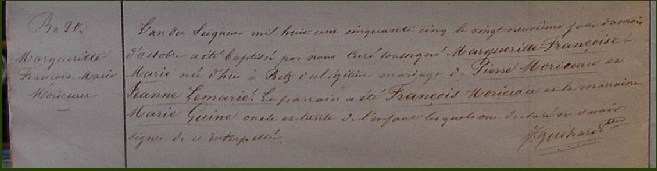 Bn 90.
Marguerite
François Marie
Moriceau
L'an du Seigneur mil huit cent cinquante cinq le vingt neuvième jour du mois
d'octobre a été baptisé par nous Curé soussigné Marguerite Françoise
Marie né d'hier à Retz du légitime mariage de Pierre Moriceau et
Jeanne Lemarié. Le parrain a été François Moriceau et la marraine
Marie Guine oncle et tante de l'enfant lesquels ont déclaré ne savoir
signer de ce interpellés.